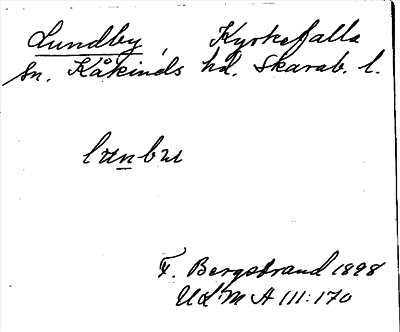 Lundby, Kyrkefalla
sn. Kåkinds hd. Skarab. l.
lunbu
F. Bergstrand 1898
ULMA 111:170